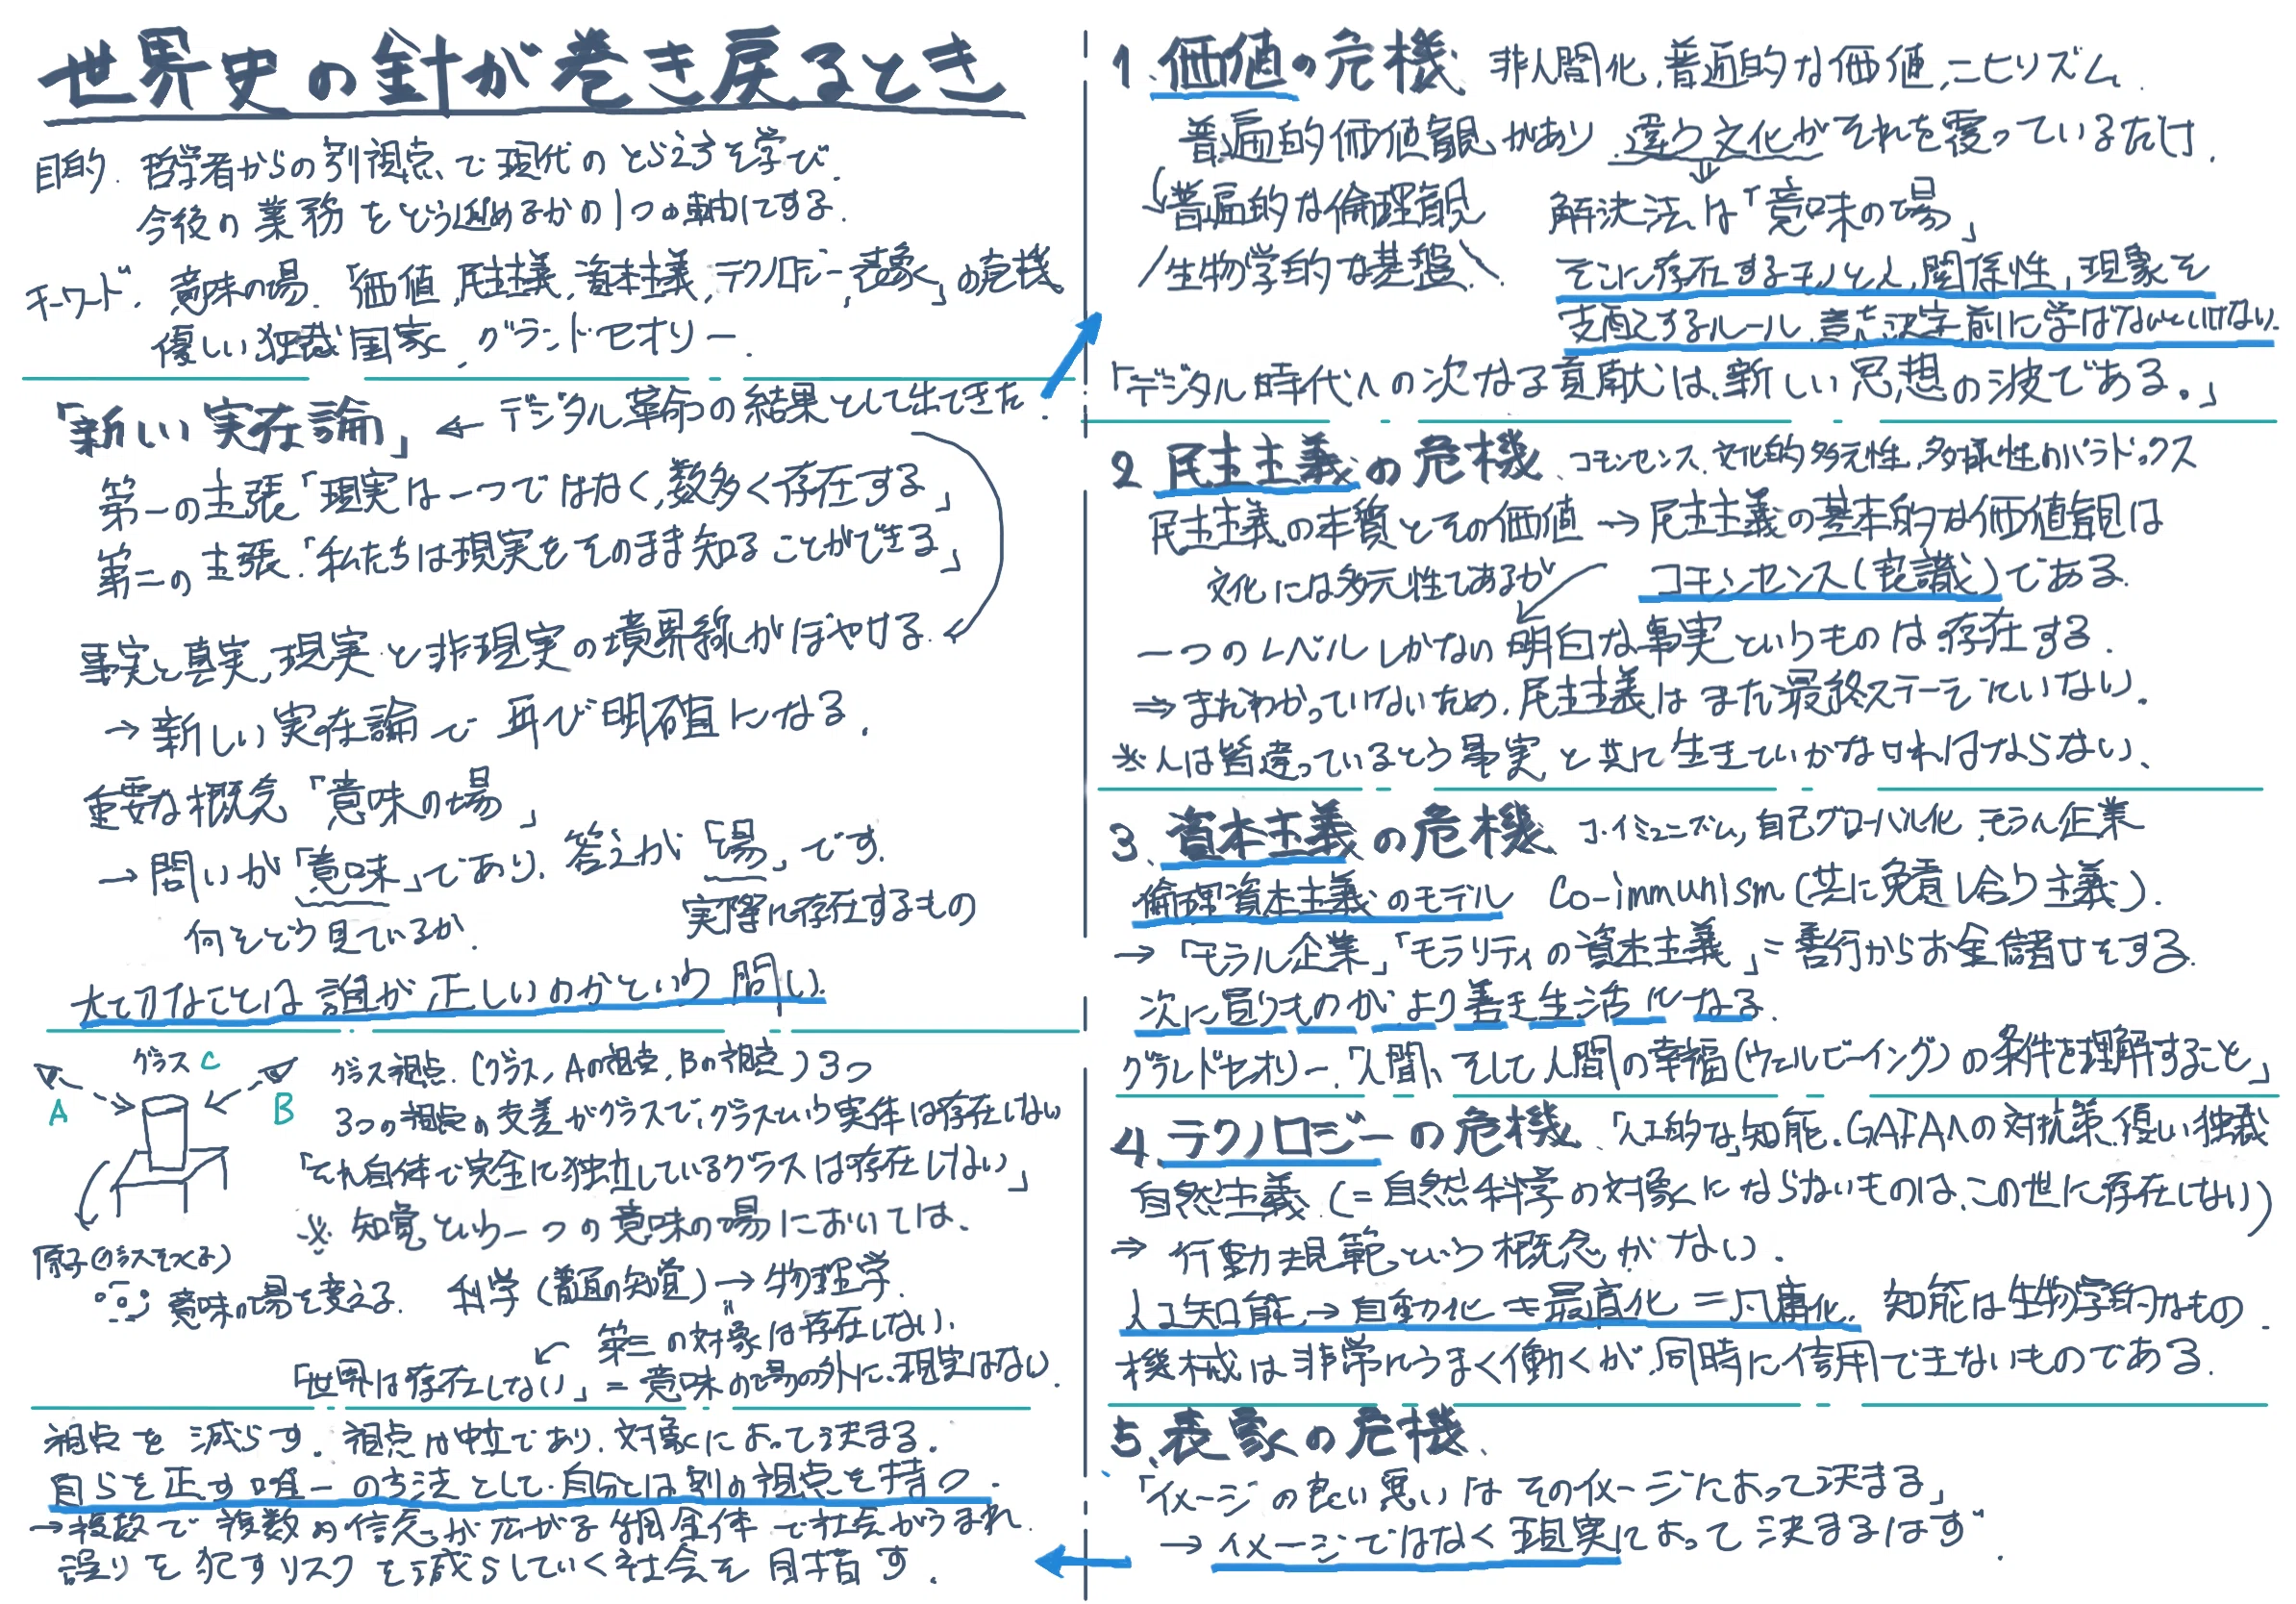 世界史の針が巻き戻るとき
目的. 哲学者からの別視点で現代のとらえ方を学び.
今後の業務をどう進めるかの1つの軸にする.
キーワード. 意味の場.「価値,民主主義,資本主義,テクノロジー,表象」の危機
優しい独裁国家, グランドセオリー.
「新しい実在論」← デジタル革命の結果として出てきた.
第一の主張「現実は一つではなく,数多く存在する」
第二の主張.「私たちは現実をそのまま知ることができる」
事実と真実,現実と非現実の境界線がぼやける.
→新しい実在論で再び明確になる.
重要な概念「意味の場」
→問いが「意味」であり.答えが「場」です.
何をどう見ているか.
実際に存在するもの
大切なことは誰が正しいのかという問い.
グラス C
A
B
原子(グラスをつくる)
グラス視点.(グラス,Aの視点,Bの視点)3つ
3つの視点の交差がグラスで,グラスという実体は存在しない
「それ自体で完全に独立しているグラスは存在しない」
※ 知覚という一つの意味の場においては.
意味の場を変える.
科学(普通の知覚)→物理学.
第三の対象は存在しない.
「世界は存在しない」=意味の場の外に,現実はない.
視点を減らす.視点は中立であり.対象によって決まる.
自らを正す唯一の方法として.自分とは別の視点を持つ.
→複数で複数の信念が広がる網全体で社会がうまれ.
誤りを犯すリスクを減らしていく社会を目指す.
1.価値の危機.非人間化,普遍的な価値,ニヒリズム.
普遍的価値観があり 違う文化がそれを覆っているだけ.
普遍的な倫理観
/生物学的な基盤\
解決法は「意味の場」
そこに存在するモノと人,関係性,現象を
支配するルール.意志決定前に学ばないといけない.
「デジタル時代への次なる貢献は,新しい思想の波である。」
2.民主主義の危機.コモンセンス.文化的多元性,多様性のパラドックス
民主主義の本質とその価値→民主主義の基本的な価値観は
コモンセンス(良識)である.
文化には多元性であるが
一つのレベルしかない明白な事実というものは存在する.
⇒まだわかっていないため.民主主義はまだ最終ステージにいない.
※人は皆違っているとう事実と共に生きていかなければならない.
3.資本主義の危機 コ・イミュニズム,自己グローバル化.モラル企業
倫理資本主義のモデル Co-immunism(共に免責し合う主義).
→「モラル企業」「モラリティの資本主義」=善行からお金儲けをする.
次に買うものが,より善き生活になる.
グランドセオリー.「人間,そして人間の幸福(ウェルビーイング)の条件を理解すること」
4.テクノロジーの危機.「人工的な」知能.GAFAへの対抗策,優しい独裁
自然主義.(=自然科学の対象にならないものは,この世に存在しない)
⇒ 行動規範という概念がない.
人工知能→自動化=最適化=凡庸化. 知能は生物学的なもの.
機械は非常にうまく働くが,同時に信用できないものである.
5.表象の危機.
「イメージの良い悪いはそのイメージによって決まる」
→イメージではなく現実によって決まるはず.